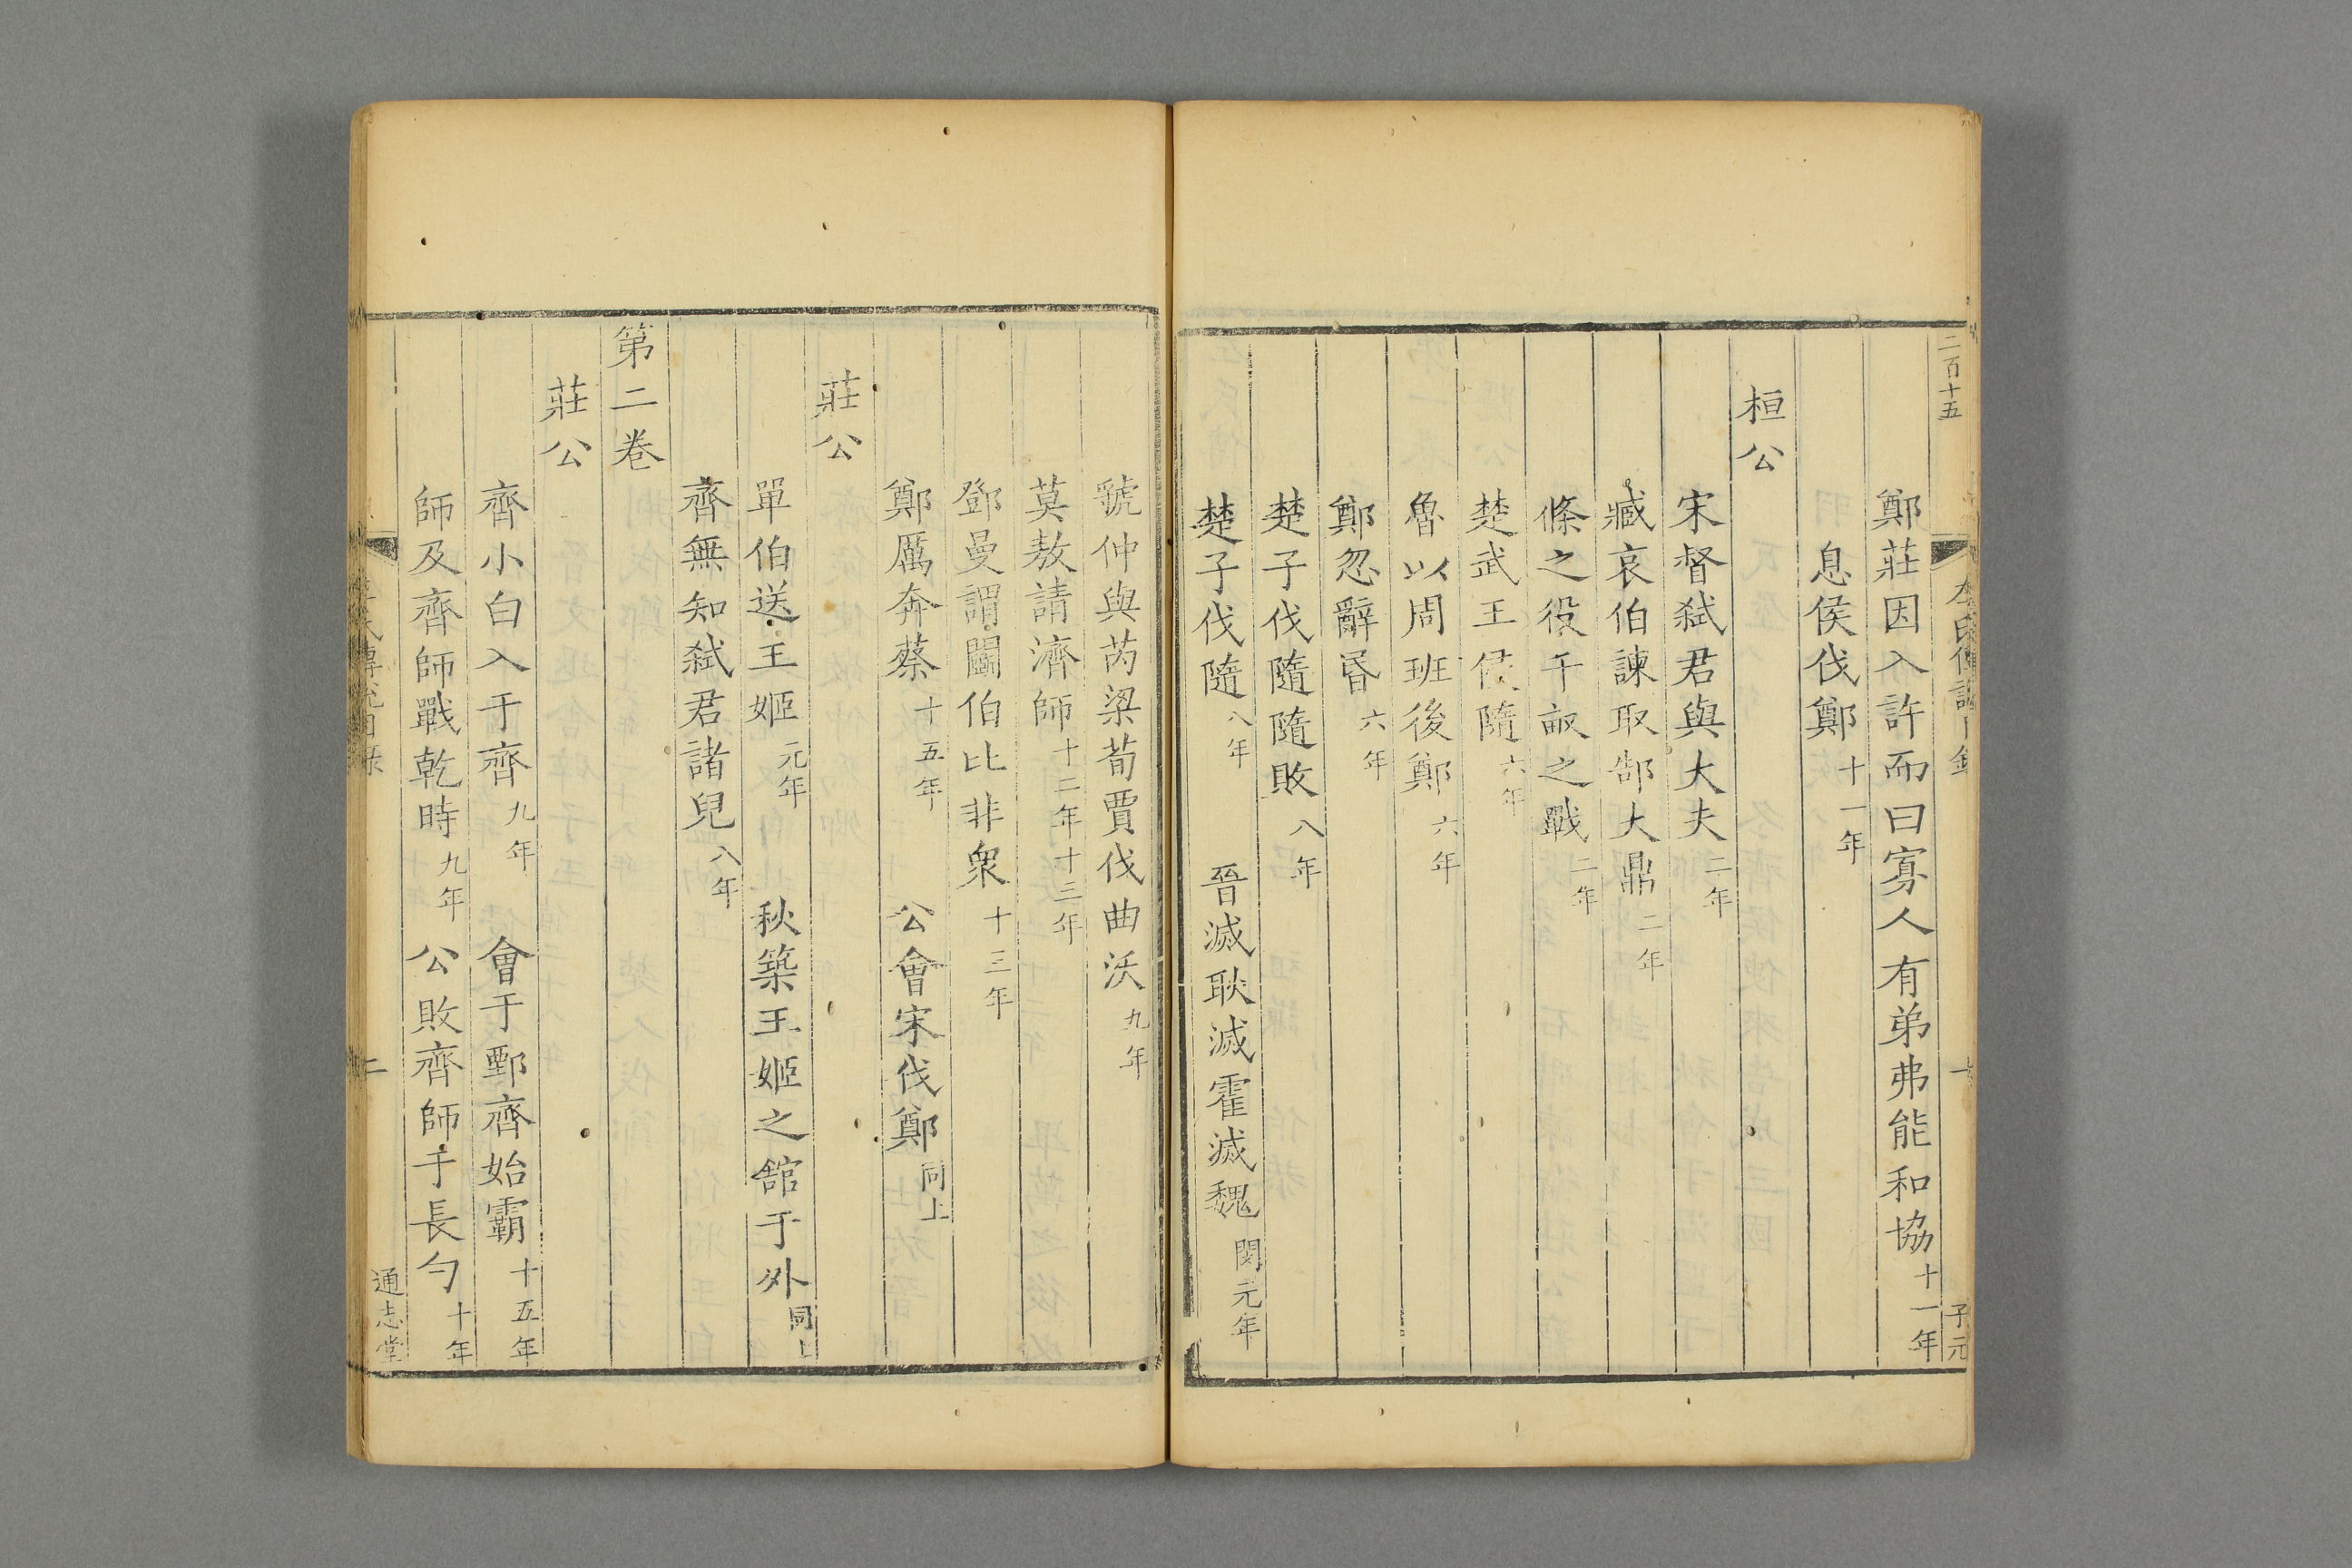 二百十五
左氏傳說目錄
一
子元
鄭莊因入許而曰寡人有弟弗能和協十一年
息侯伐鄭十一年
桓公
宋督弑君與大夫二年
臧哀伯諫取郜大鼎二年
條之役千畝之戰二年
楚武王侵隨六年
魯以周班後鄭六年
鄭忽辭昬六年
楚子伐隨隨敗八年
楚子伐隨八年 晉滅耿滅霍滅魏閔元年
虢仲與芮梁荀賈伐曲沃九年
莫敖請濟師十二年十三年
鄧曼謂鬭伯比非衆十三年
鄭厲奔蔡十五年 公會宋伐鄭同上
莊公
單伯送王姬元年 秋築王姬之舘于外同上
齊無知弑君諸兒八年
第二卷
莊公
齊小白入于齊九年 會于鄄齊始霸十五年
師及齊師戰乾時九年 公敗齊師于長勺十年
左氏傳說目錄
二
通志堂